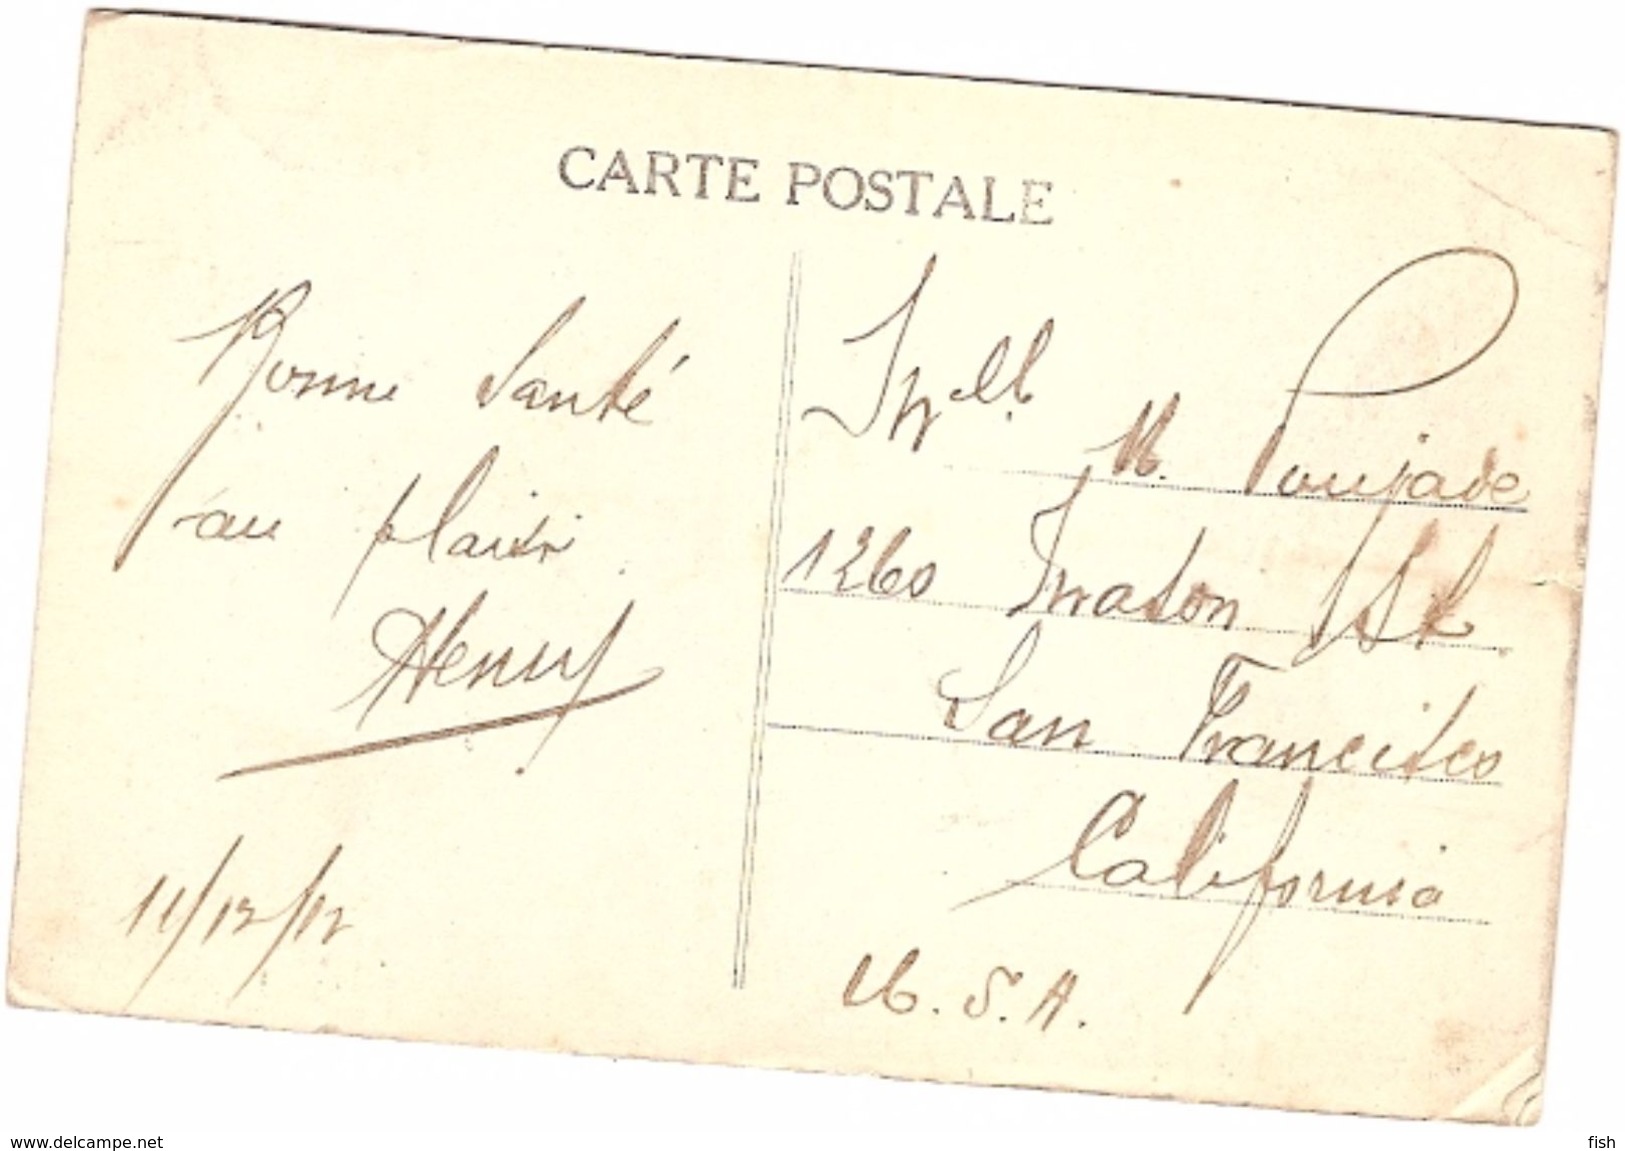 CARTE POSTALE
Bonne Santé
au plaisir.
Henry
11/12/12
Mlle. M. Poujade
1260 St.
San Francisco
California
U.S.A.
www.delcampe.net
fish